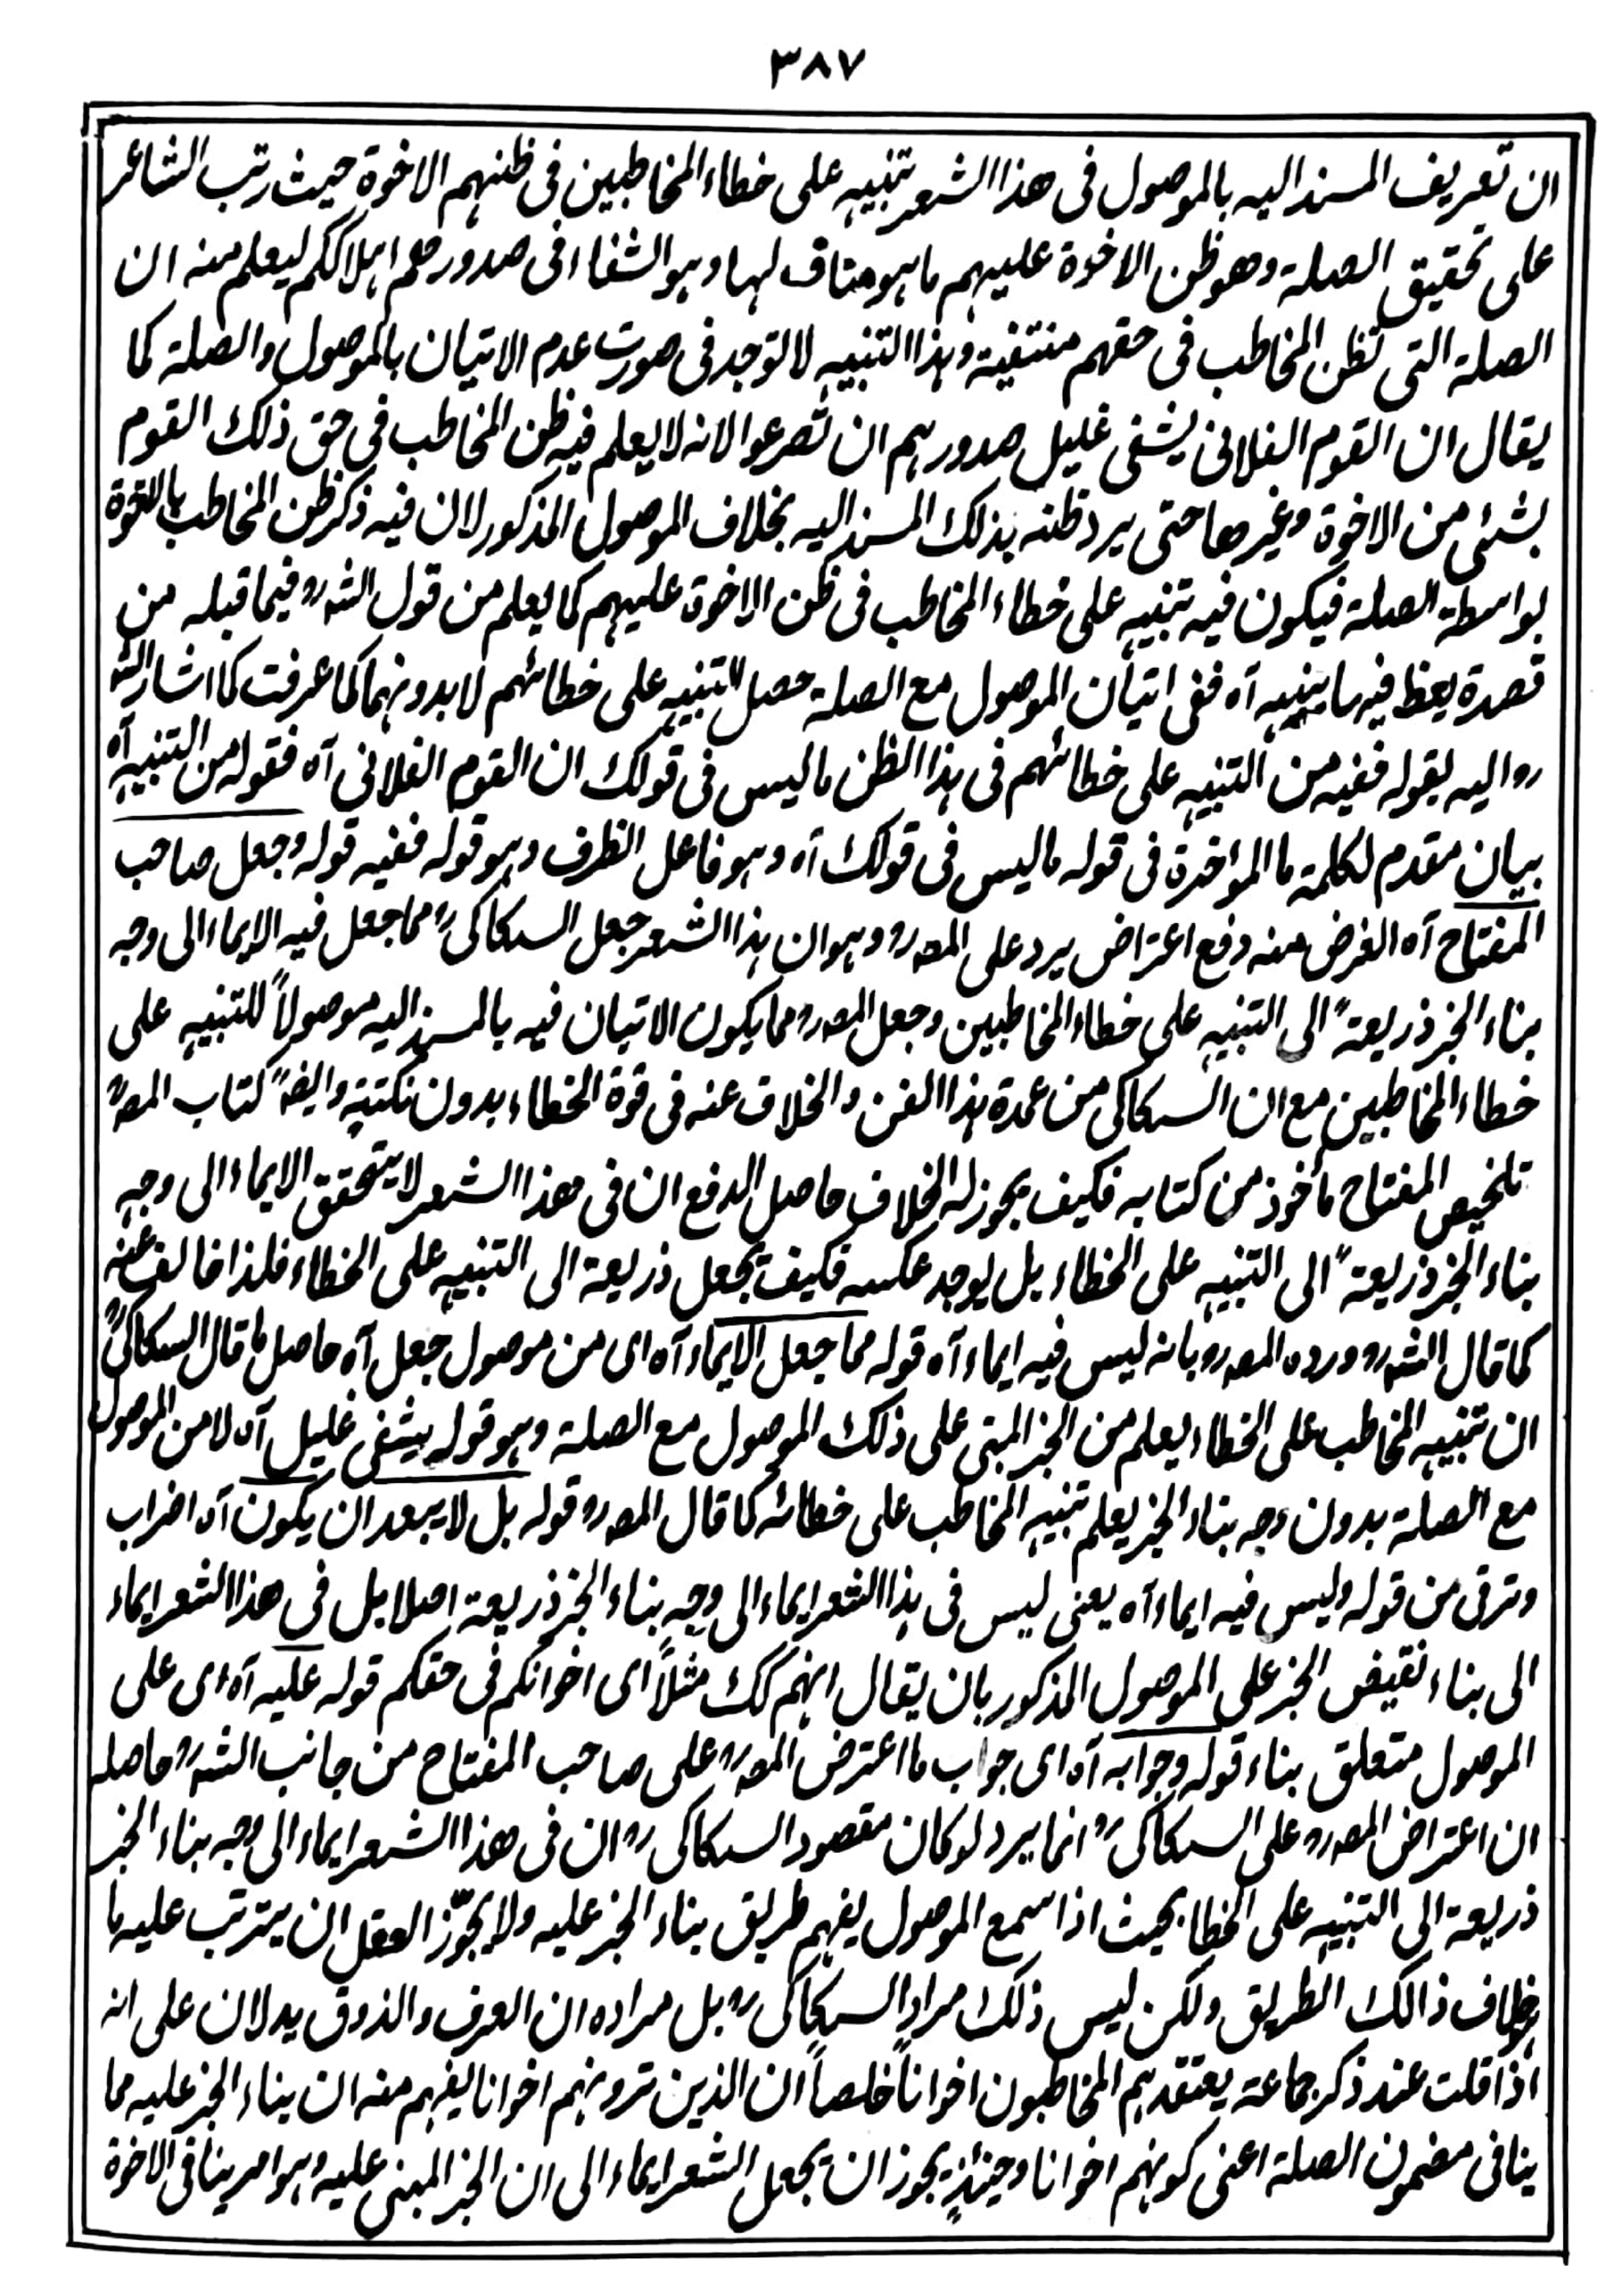 ٣٨٧
ان تعريف المسند اليه بالموصول فى هذا الشعر تنبيه على خطاء المخاطبين فى ظنهم الاخوة حيث رتب الشاعر
على تحقيق الصلة وهو ظن الاخوة عليهم ما هو مناف لها وهو الشفاء فى صدورهم اهلاككم ليعلم منه ان
الصلة التى تظن المخاطب فى حقهم منتفية وهذا التنبيه لا توجد فى صورت عدم الاتيان بالموصول والصلة كما
يقال ان القوم الفلانى يشفى غليل صدورهم ان تصرعوا لانه لا يعلم فيه ظن المخاطب فى حق ذلك القوم
بشئى من الاخوة وغيرها حتى يرد ظنه بذلك المسند اليه بخلاف الموصول المذكور لان فيه ذكر ظن المخاطب بالاخوة
بواسطة الصلة فيكون فيه تنبيه على خطاء المخاطب فى ظن الاخوة عليهم كما يعلم من قول الشه رو فيما قبله من
قصدة يعظ فيها بنيه آه ففى اتيان الموصول مع الصلة حصل التنبيه على خطائهم لا بدونهما كما عرفت كما اشار الشه
رو اليه بقوله ففيه من التنبيه على خطائهم فى هذا الظن ما ليس فى قولك ان القوم الفلانى آه فقوله من التنبيه آه
بيان مقدم لكلمة ما المؤخرة فى قوله ما ليس فى قولك آه وهو فاعل الظرف وهو قوله ففيه قوله وجعل صاحب
المفتاح آه الغرض منه دفع اعتراض يرد على المصه رو وهو ان هذا الشعر جعل السكاكى رو مما جعل فيه الايماء الى وجه
بناء الخبر ذريعةً الى التنبيه على خطاء المخاطبين وجعل المصه رو مما يكون الاتيان فيه بالمسند اليه موصولاً للتنبيه على
خطاء المخاطبين مع ان السكاكى من عمدة هذا الفن والخلاف عنه فى قوة الخطاء بدون نكتة وايضً كتاب المصه رو
تلخيص المفتاح مأخوذ من كتابه فكيف يجوز له الخلاف حاصل الدفع ان فى هذا الشعر لا يتحقق الايماء الى وجه
بناء الخبر ذريعةً الى التنبيه على الخطاء بل يوجد عكسه فكيف يجعل ذريعة الى التنبيه على الخطاء فلذا خالف عنه
كما قال الشه رو ورده المصه رو بانه ليس فيه ايماء آه قوله مما جعل الايماء آه اى من موصول جعل آه حاصل ما قال السكاكى رو
ان تنبيه المخاطب على الخطاء يعلم من الخبر المبنى على ذلك الموصول مع الصلة وهو قوله يشفى غليل آه لا من الموصول
مع الصلة بدون وجه بناء الخبر يعلم تنبيه المخاطب على خطائه كما قال المصه رو قوله بل لا يبعد ان يكون آه اضراب
وترقى من قوله وليس فيه ايماء آه يعنى ليس فى هذا الشعر ايماء الى وجه بناء الخبر ذريعة اصلا بل فى هذا الشعر ايماء
الى بناء نقيض الخبر على الموصول المذكور بان يقال انهم كك مثلاً اى اخوانكم فى حقكم قوله عليه آه اى على
الموصول متعلق بناء قوله وجوابه آه اى جواب ما اعترض المصه رو على صاحب المفتاح من جانب الشه رو حاصله
ان اعتراض المصه رو على السكاكى رو انما يرد لو كان مقصود السكاكى رو ان فى هذا الشعر ايماء الى وجه بناء الخبر
ذريعة الى التنبيه على الخطا بحيث اذا سمع الموصول يفهم طريق بناء الخبر عليه ولا يجوّز العقل ان يترتب عليه ما
بخلاف ذالك الطريق ولكن ليس ذلك مراد السكاكى رو بل مراده ان العرف والذوق يدلان على انه
اذا قلت عند ذكر جماعة يعتقدهم المخاطبون اخواناً خلصاً ان الذين ترونهم اخوانا يفهم منه ان بناء الخبر عليه مما
ينافى مضمون الصلة اعنى كونهم اخوانا وحينئذٍ يجوز ان يجعل الشعر ايماء الى ان الخبر المبنى عليه وهو امر ينافى الاخوة